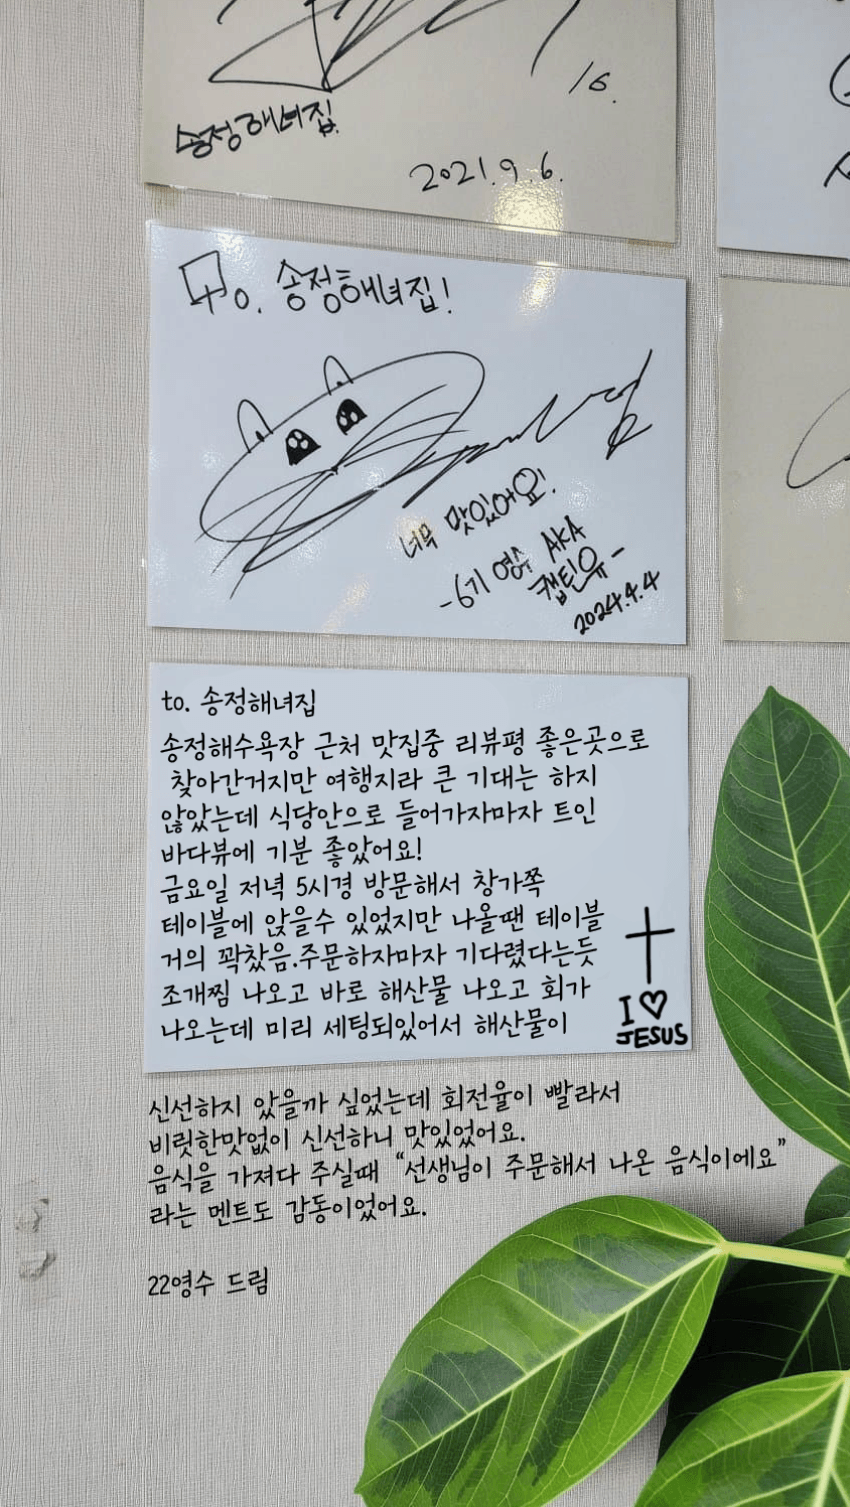 16.
송정해녀집
2021.9.6.
To. 송정해녀집!
너무 맛있어요!
-6기 영수 AKA
캡틴유-
2024.4.4
to. 송정해녀집
송정해수욕장 근처 맛집중 리뷰평 좋은곳으로
찾아간거지만 여행지라 큰 기대는 하지
않았는데 식당안으로 들어가자마자 트인
바다뷰에 기분 좋았어요!
금요일 저녁 5시경 방문해서 창가쪽
테이블에 앉을수 있었지만 나올땐 테이블
거의 꽉찼음.주문하자마자 기다렸다는듯
조개찜 나오고 바로 해산물 나오고 회가
나오는데 미리 세팅되있어서 해산물이
I ♡
JESUS
신선하지 았을까 싶었는데 회전율이 빨라서
비릿한맛없이 신선하니 맛있었어요.
음식을 가져다 주실때 “선생님이 주문해서 나온 음식이에요”
라는 멘트도 감동이었어요.
22영수 드림